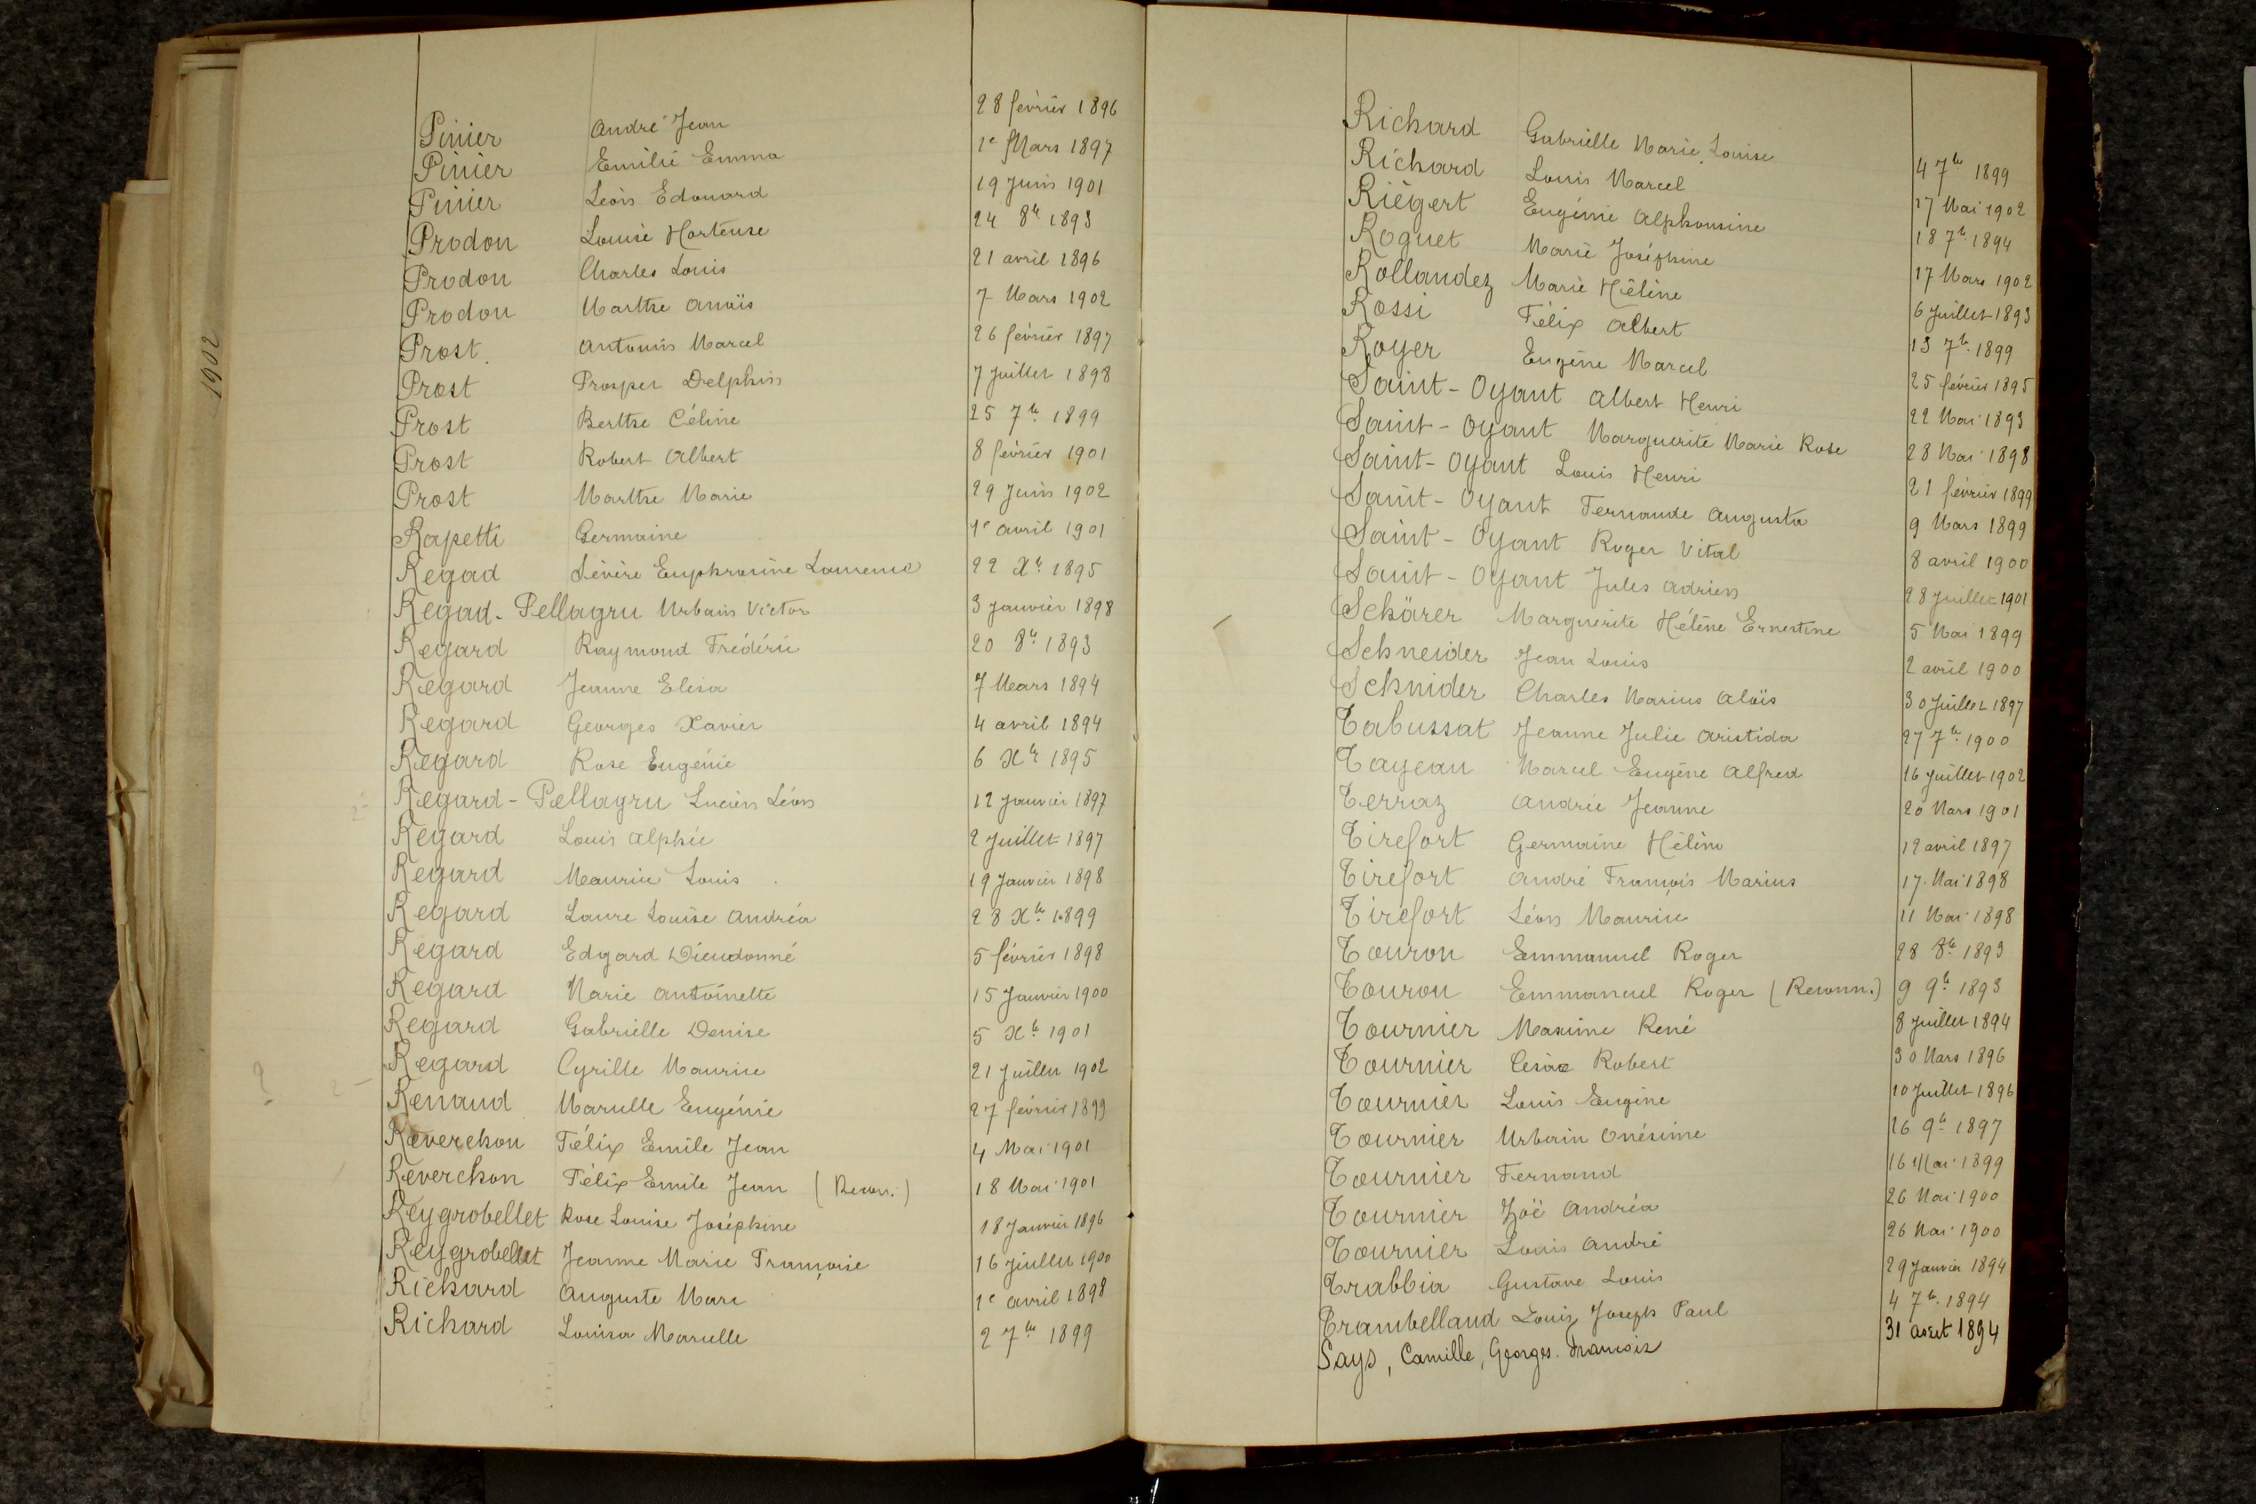 1902
Pinier André Jean 28 février 1896
Pinier Emilie Emma 1e Mars 1897
Pinier Léon Edouard 19 Juin 1901
Prodon Louise Hortense 24 8bre 1893
Prodon Charles Louis 21 avril 1896
Prodon Marthe Anaïs 7 Mars 1902
Prost Antonin Marcel 26 février 1897
Prost Prosper Delphin 7 Juillet 1898
Prost Berthe Céline 25 7bre 1899
Prost Robert Albert 8 février 1901
Prost Marthe Marie 29 Juin 1902
Rapetti Germaine 1e avril 1901
Regad Sévère Euphrosine Laurence 22 Xbre 1895
Regad-Pellagru Urbain Victor 3 Janvier 1898
Regard Raymond Frédéric 20 8bre 1893
Regard Jeanne Elisa 7 Mars 1894
Regard Georges Xavier 4 avril 1894
Regard Rose Eugénie 6 Xbre 1895
Regard-Pellagru Lucien Léon 12 Janvier 1897
Regard Louis Alphée 2 Juillet 1897
Regard Maurice Louis 19 Janvier 1898
Regard Laure Louise Andréa 28 Xbre 1899
Regard Edgard Dieudonné 5 février 1898
Regard Marie Antoinette 15 Janvier 1900
Regard Gabrielle Denise 5 Xbre 1901
? Regard Cyrille Maurice 21 Juillet 1902
Renaud Marcelle Eugénie 27 février 1899
Reverchon Félix Emile Jean 4 Mai 1901
Reverchon Félix Emile Jean (Recon.) 18 Mai 1901
Reygrobellet Rose Louise Joséphine 18 Janvier 1896
Reygrobellet Jeanne Marie Françoise 16 Juillet 1900
Richard Auguste Marc 1e avril 1898
Richard Louisa Marcelle 2 7bre 1899
Richard Gabrielle Marie Louise 4 7bre 1899
Richard Louis Marcel 17 Mai 1902
Riègert Eugénie Alphonsine 18 7bre 1894
Roguet Marie Joséphine 17 Mars 1902
Rollandez Marie Hélène 6 Juillet 1893
Rossi Félix Albert 13 7bre 1899
Royer Eugène Marcel 25 février 1895
Saint-Oyant Albert Henri 22 Mai 1893
Saint-Oyant Marguerite Marie Rose 28 Mai 1898
Saint-Oyant Louis Henri 21 février 1899
Saint-Oyant Fernande Augusta 9 Mars 1899
Saint-Oyant Roger Vital 8 avril 1900
Saint-Oyant Jules Adrien 28 Juillet 1901
Schärer Marguerite Hélène Ernestine 5 Mai 1899
Schneider Jean Louis 2 avril 1900
Schnider Charles Marius Aloïs 30 Juillet 1897
Tabussat Jeanne Julie Aristida 27 7bre 1900
Tayeau Marcel Eugène Alfred 16 Juillet 1902
Terraz Andrée Jeanne 20 Mars 1901
Tirefort Germaine Hélène 12 avril 1897
Tirefort André François Marius 17 Mai 1898
Tirefort Léon Maurice 11 Mai 1898
Touron Emmanuel Roger 28 8bre 1893
Touron Emmanuel Roger (Reconn.) 9 9bre 1893
Tournier Maxime René 8 Juillet 1894
Tournier César Robert 30 Mars 1896
Tournier Louis Eugène 10 Juillet 1896
Tournier Urbain Onésime 16 9bre 1897
Tournier Fernand 16 Mai 1899
Tournier Zoë Andréa 26 Mai 1900
Tournier Louis André 26 Mai 1900
Trabbia Gustave Louis 29 Janvier 1894
Trambelland Louis Joseph Paul 4 7bre 1894
Says, Camille, Georges. François 31 août 1894